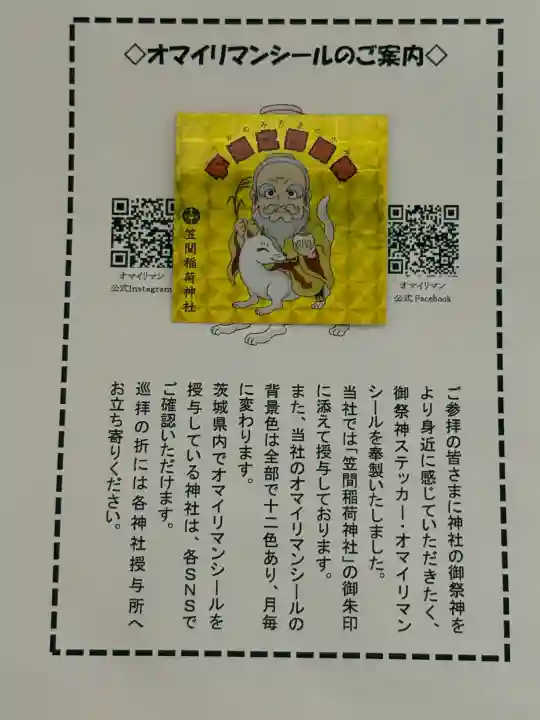 ◇オマイリマンシールのご案内◇
うかのみたまのかみ
宇迦之御魂神
笠間稲荷神社
オマイリマン
公式Instagram
オマイリマン
公式 Facebook
ご参拝の皆さまに神社の御祭神を
より身近に感じていただきたく、
御祭神ステッカー・オマイリマン
シールを奉製いたしました。
当社では「笠間稲荷神社」の御朱印
に添えて授与しております。
また、当社のオマイリマンシールの
背景色は全部で十二色あり、月毎
に変わります。
茨城県内でオマイリマンシールを
授与している神社は、各SNSで
ご確認いただけます。
巡拝の折には各神社授与所へ
お立ち寄りください。